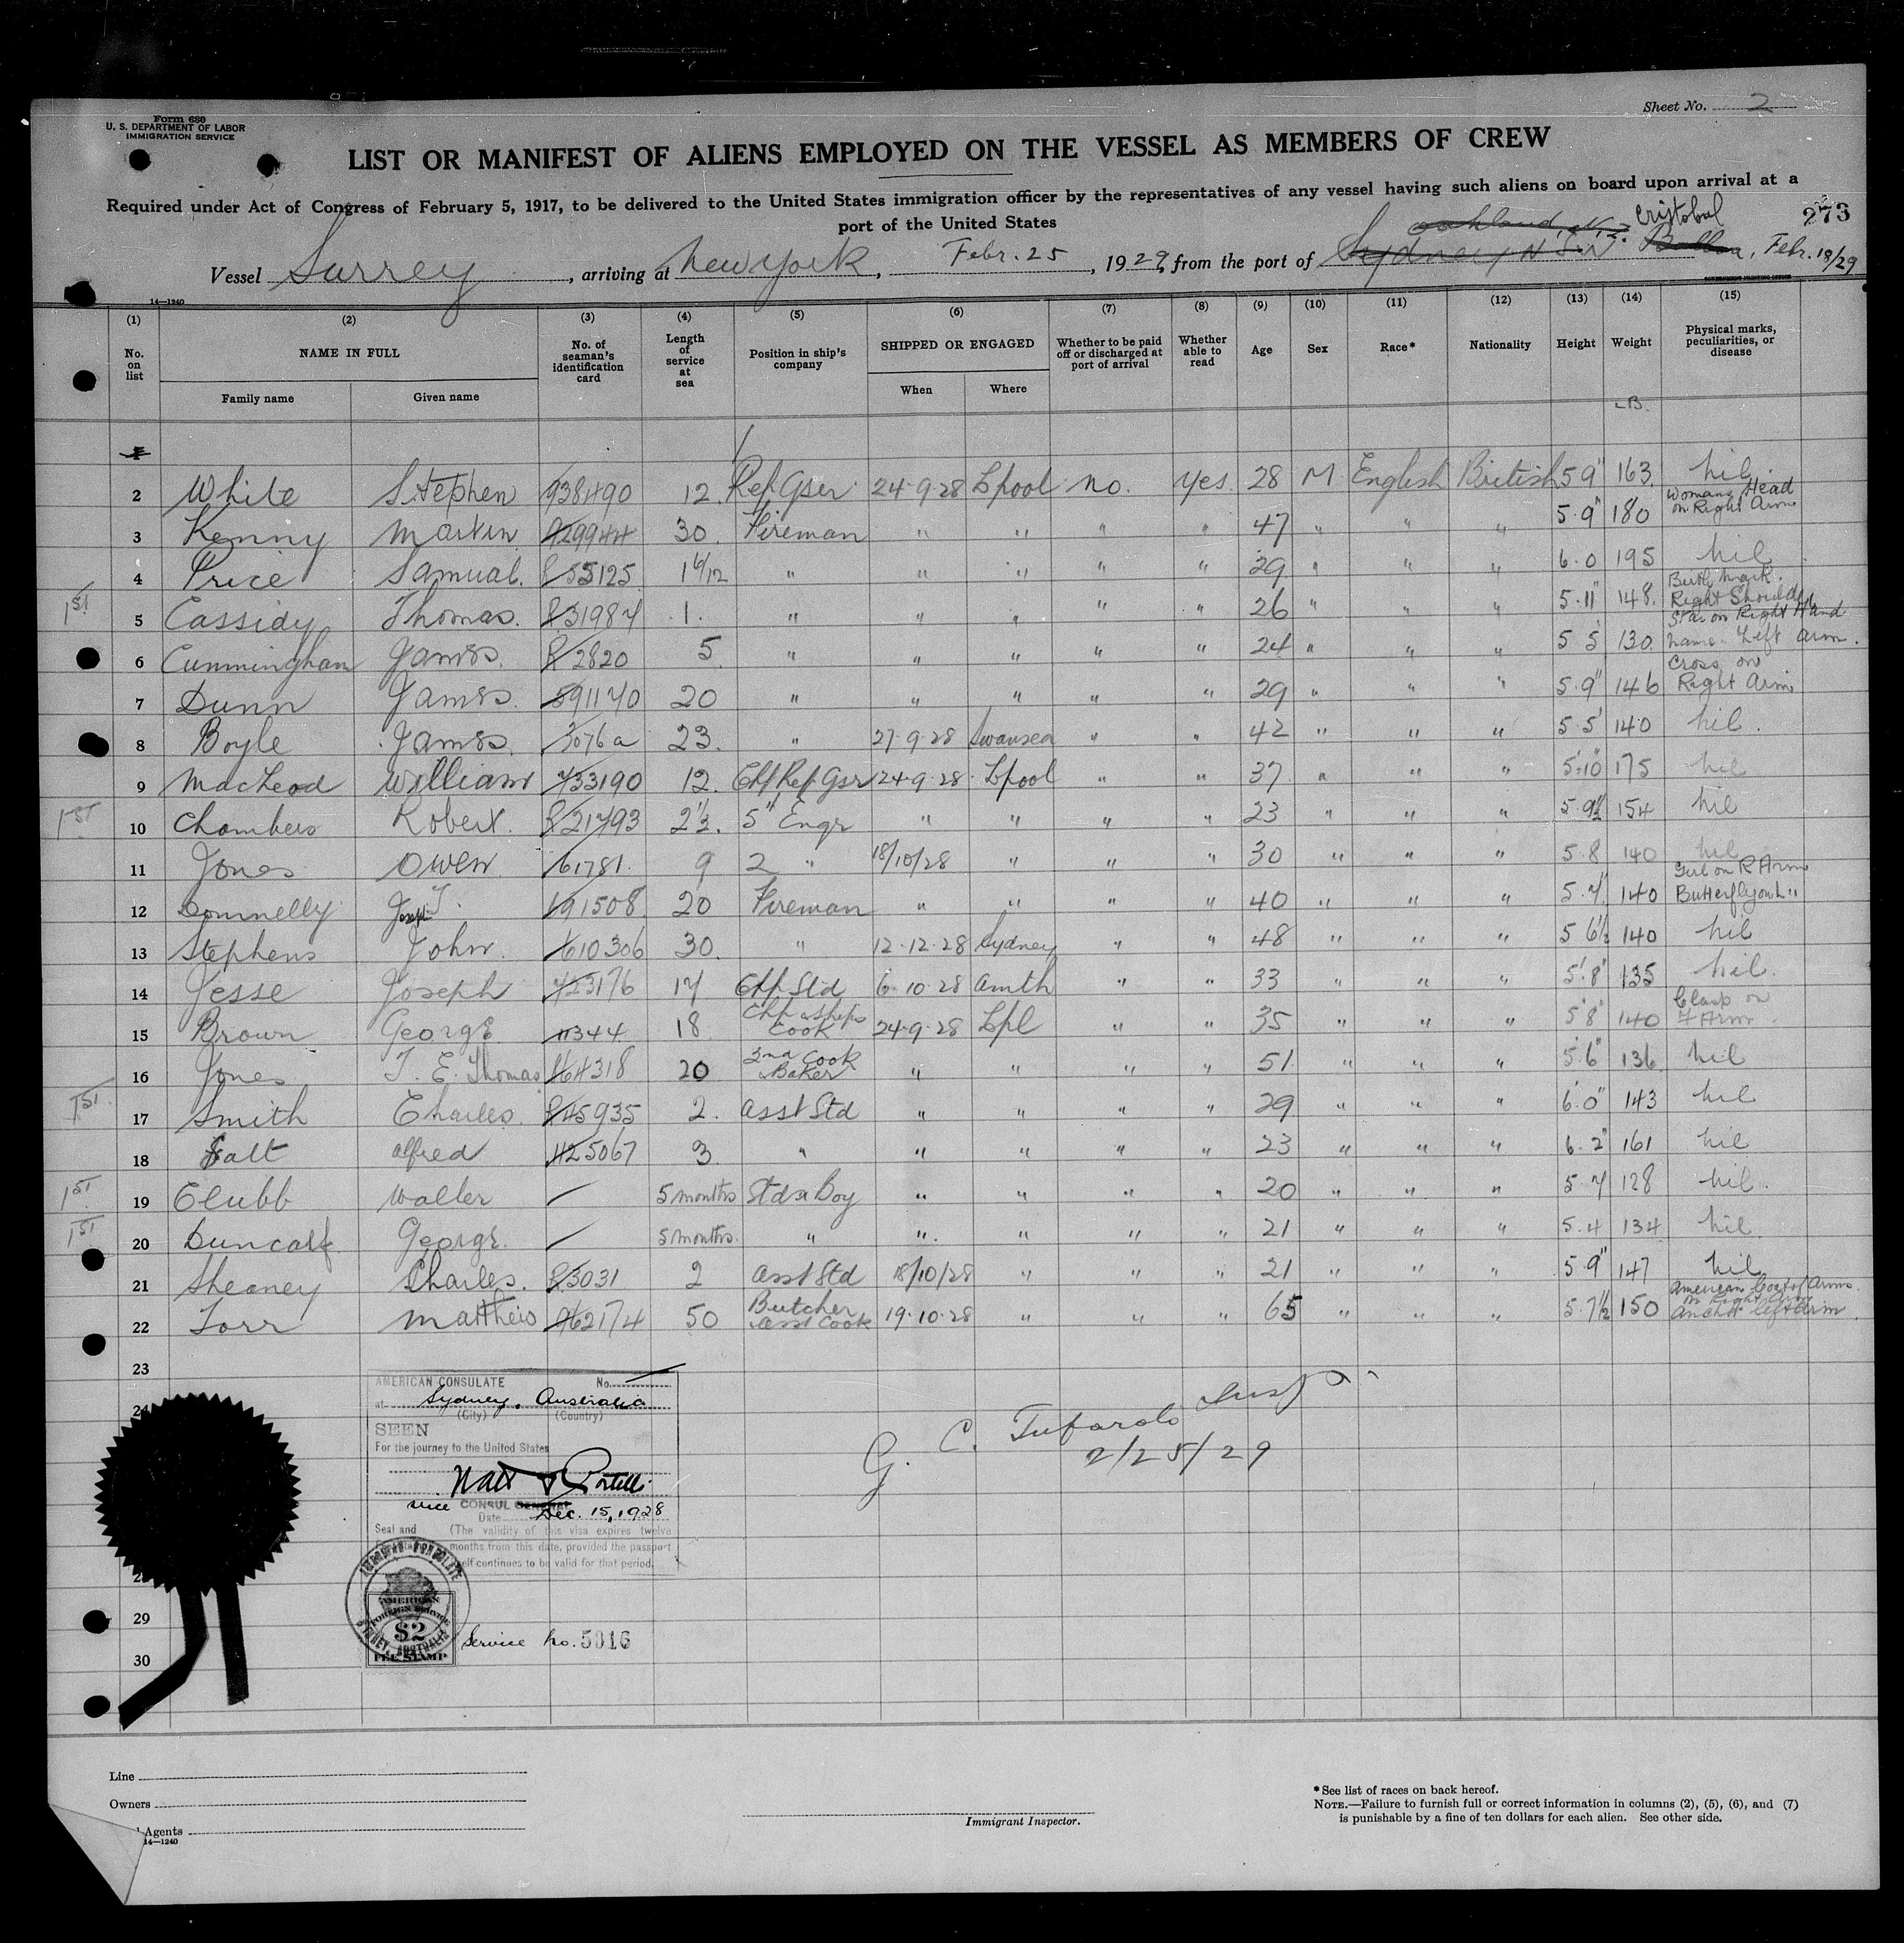 Sheet No. 2
Form 680
U. S. DEPARTMENT OF LABOR
IMMIGRATION SERVICE
LIST OR MANIFEST OF ALIENS EMPLOYED ON THE VESSEL AS MEMBERS OF CREW
Required under Act of Congress of February 5, 1917, to be delivered to the United States immigration officer by the representatives of any vessel having such aliens on board upon arrival at a
port of the United States
273
Vessel Surrey, arriving at New York, Febr. 25, 1929, from the port of Sydney N.S.W. Cristobal Balboa, Febr. 18/29
14—1240
(1) (2) (3) (4) (5) (6) (7) (8) (9) (10) (11) (12) (13) (14) (15)
No. on list NAME IN FULL No. of seaman's identification card Length of service at sea Position in ship's company SHIPPED OR ENGAGED Whether to be paid off or discharged at port of arrival Whether able to read Age Sex Race* Nationality Height Weight Physical marks, peculiarities, or disease
Family name Given name When Where
LB.
1
2 White Stephen 938490 12 Ref Gser 24-9-28 Lpool no. yes 28 M English British 5 9" 163 nil
3 Kenny Martin 929944 30 Fireman " " " " 47 " " " 5.9" 180 Womans Head on Right Arm
4 Price Samual. R 55125 1 6/12 " " " " " 29 " " " 6.0 195 nil
1st 5 Cassidy Thomas. R 31987 1. " " " " " 26 " " " 5.11" 148 Birth Mark. Right Shoulder
6 Cunningham James. R 2820 5 " " " " " 24 " " " 5 5 130 Star on Right Hand name Left arm.
7 Dunn James. 891170 20 " " " " " 29 " " " 5.9" 146 Cross on Right Arm
8 Boyle James. 3076a 23. " 27-9-28 Swansea " " 42 " " " 5.5 140 nil.
9 MacLeod William 733190 12. Chf Ref Gser 24-9-28 Lpool " " 37 " " " 5.10" 175 nil
1st 10 Chambers Robert. R 21793 2½. 5" Engr " " " " 23 " " " 5.9½ 154 nil
11 Jones Owen 61781 9 2 " 18/10/28 " " " 30 " " " 5.8 140 nil
12 Donnelly Joseph T. 191508 20 Fireman " " " " 40 " " " 5.7" 140 Girl on R Arm Butterfly on L "
13 Stephens John. 610306 30. " 12-12-28 Sydney " " 48 " " " 5 6½ 140 nil
14 Jesse Joseph 723176 17 Chf Std 6-10-28 Amth " " 33 " " " 5'.8" 135 nil.
15 Brown George 11344 18 Chf & Ships Cook 24-9-28 Lpl " " 35 " " " 5'8" 140
16 Jones T. E. Thomas 864318 20 2nd Cook Baker " " " " 51 " " " 5'6" 136 nil
1st 17 Smith Charles. R 45935 2. Asst Std " " " " 29 " " " 6'.0" 143 nil
18 Salt Alfred 1125067 3 " " " " " 23 " " " 6.2" 161 nil
1st 19 Clubb Walter 5 months Stds Boy " " " " 20 " " " 5.7 128 nil.
1st 20 Duncalf George. 5 months. " " " " " 21 " " " 5.4 134 nil.
21 Sheaney Charles. R 3031 2 Asst Std 18/10/28 " " " 21 " " " 5.9" 147 nil
22 Torr Matthew 962174 50 Butcher Asst Cook 19-10-28 " " " 65 " " " 5.7½ 150 American Coat of Arms on Right Arm Anchor left arm.
23
AMERICAN CONSULATE No.
at Sydney, Australia
(City) (Country)
SEEN
For the journey to the United States
vice CONSUL GENERAL
Date Dec. 15, 1928
Seal and (The validity of this visa expires twelve
months from this date, provided the passport
self continues to be valid for that period.
G. C. Tufarolo Insp
2/25/29
AMERICAN CONSULATE
SYDNEY, AUSTRALIA
AMERICAN
FOREIGN SERVICE
$2
FEE STAMP
Service No. 5016
29
30
Line
Owners
Agents
14—1240
Immigrant Inspector.
*See list of races on back hereof.
NOTE.—Failure to furnish full or correct information in columns (2), (5), (6), and (7)
is punishable by a fine of ten dollars for each alien. See other side.